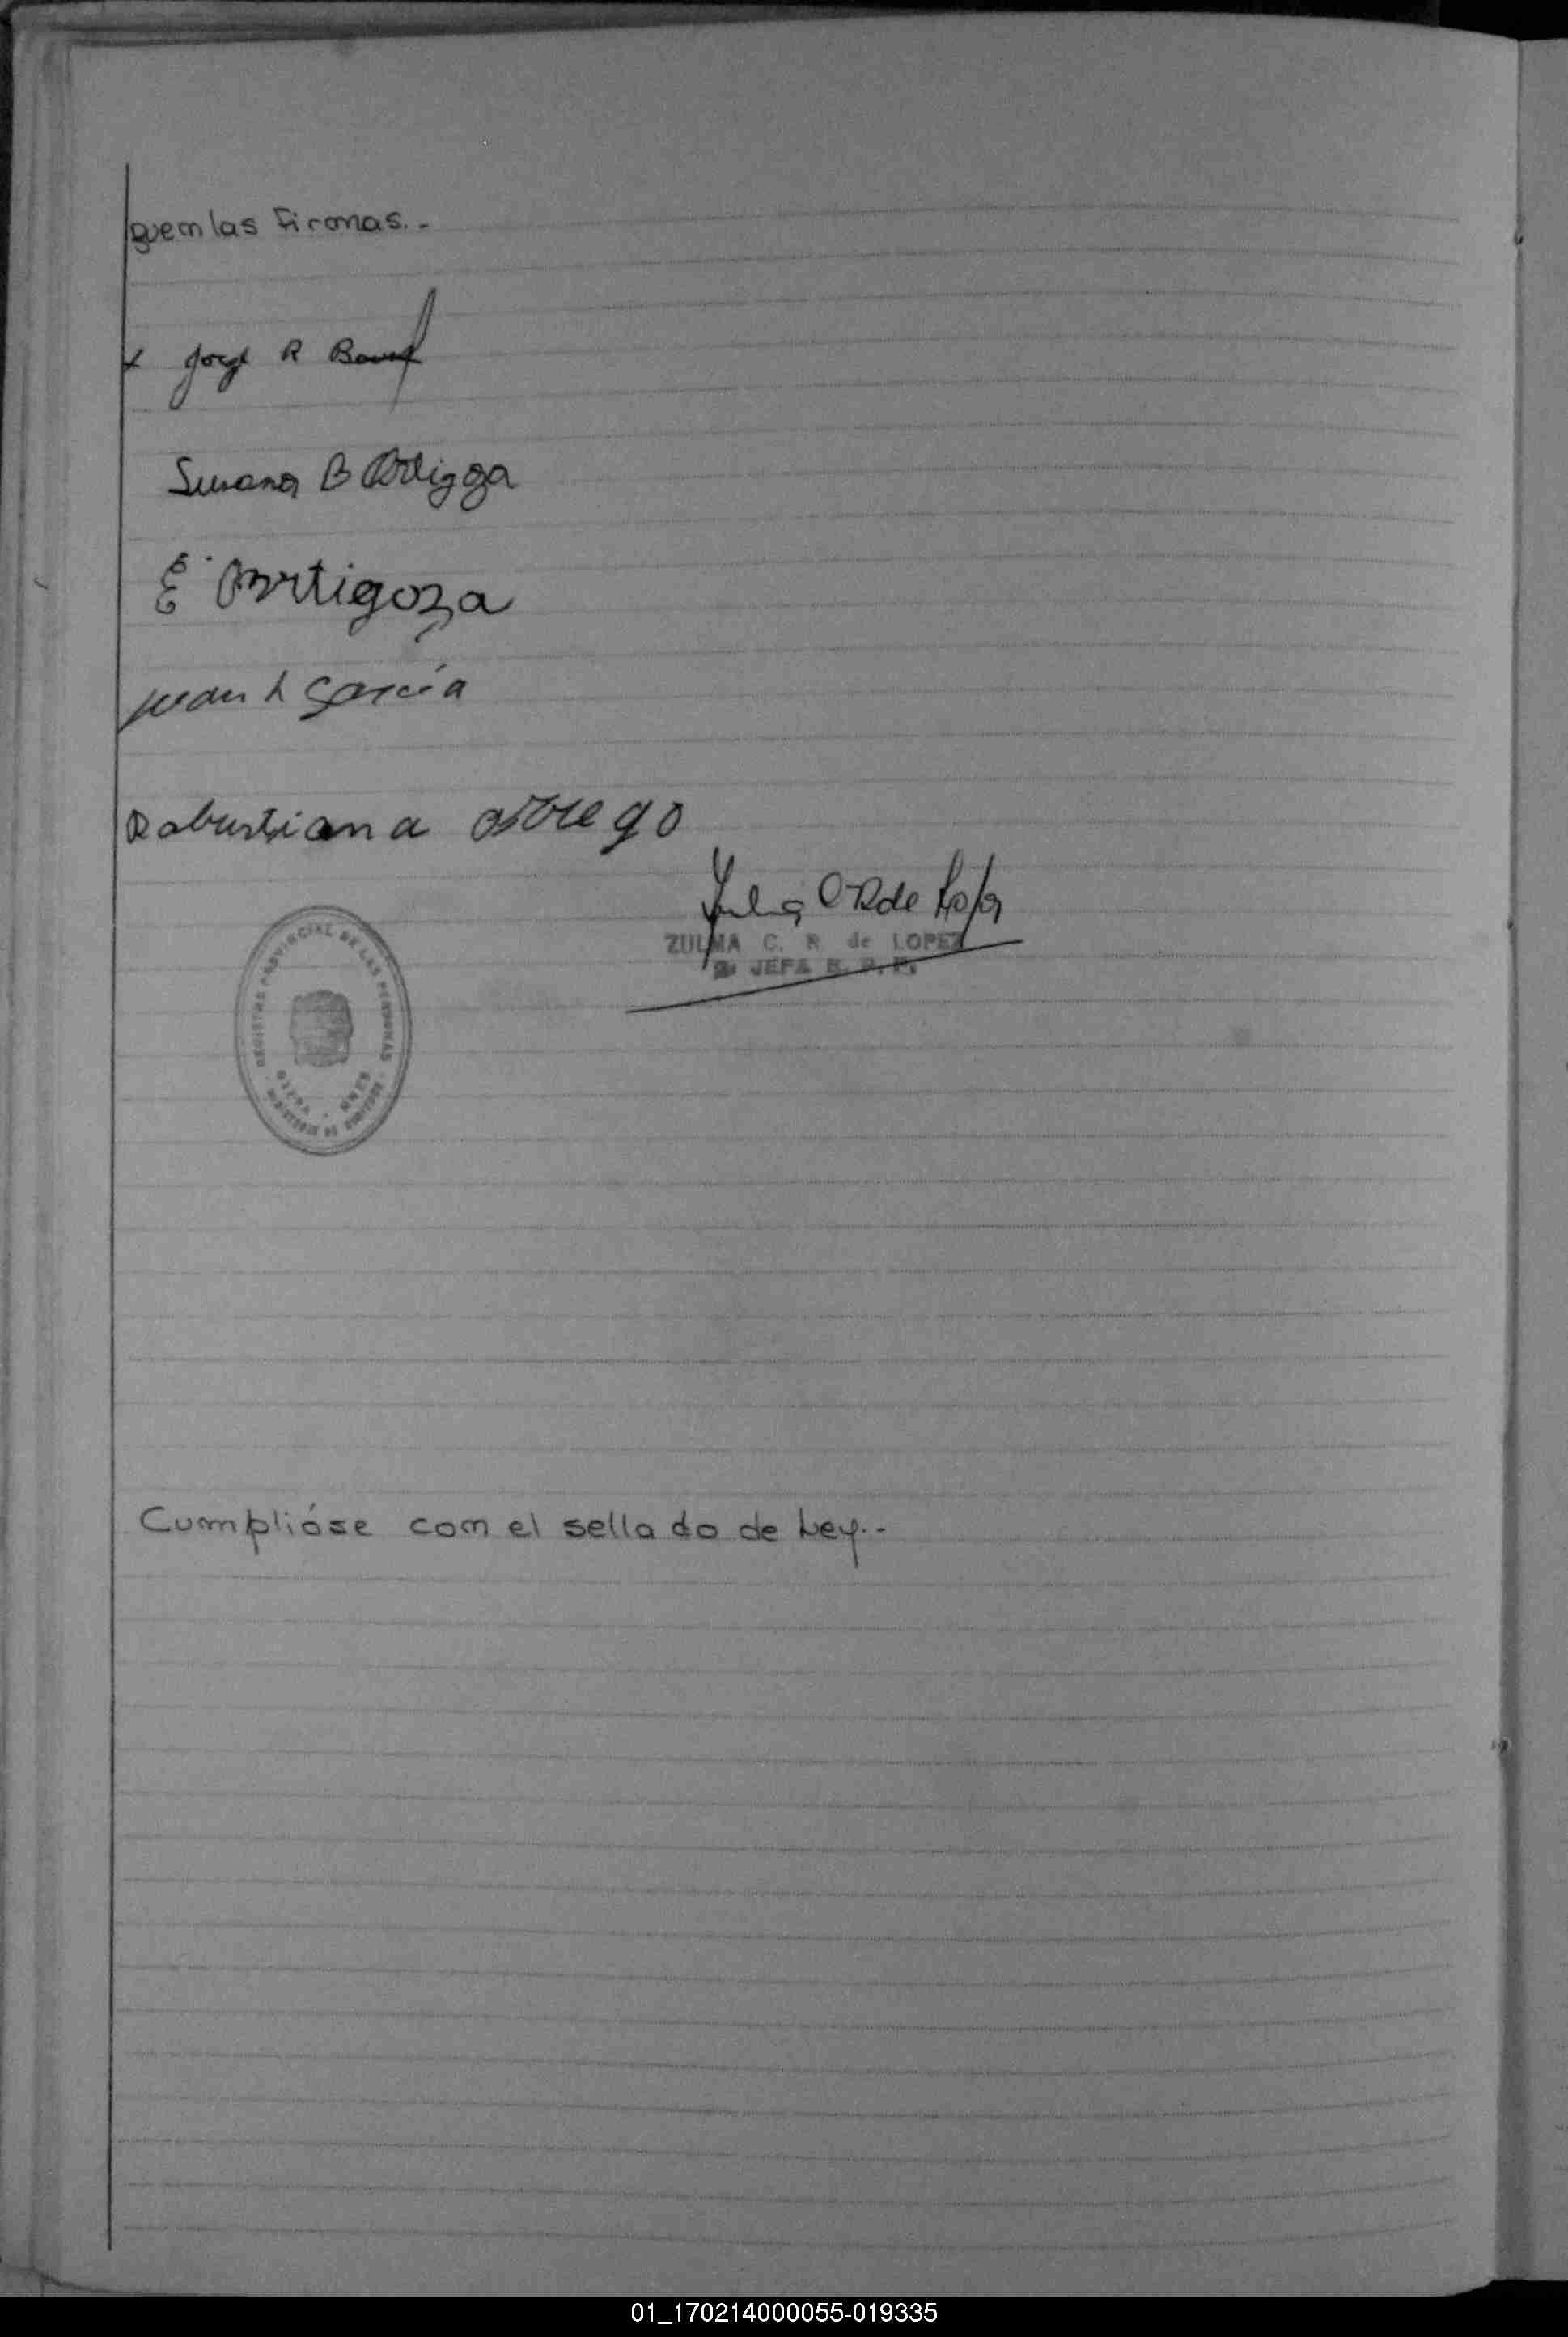 guen las firmas.-
Jorge R
Susana B Ortigoza
E. Ortigoza
Juan A García
Robustiana Obrego
Zulma C R de Lopez
ZULMA C. R. de LOPEZ
JEFA R. P. P.
REGISTRO PROVINCIAL DE LAS PERSONAS
MINISTERIO DE GOBIERNO
Cumplióse con el sellado de Ley.-
01_170214000055-019335